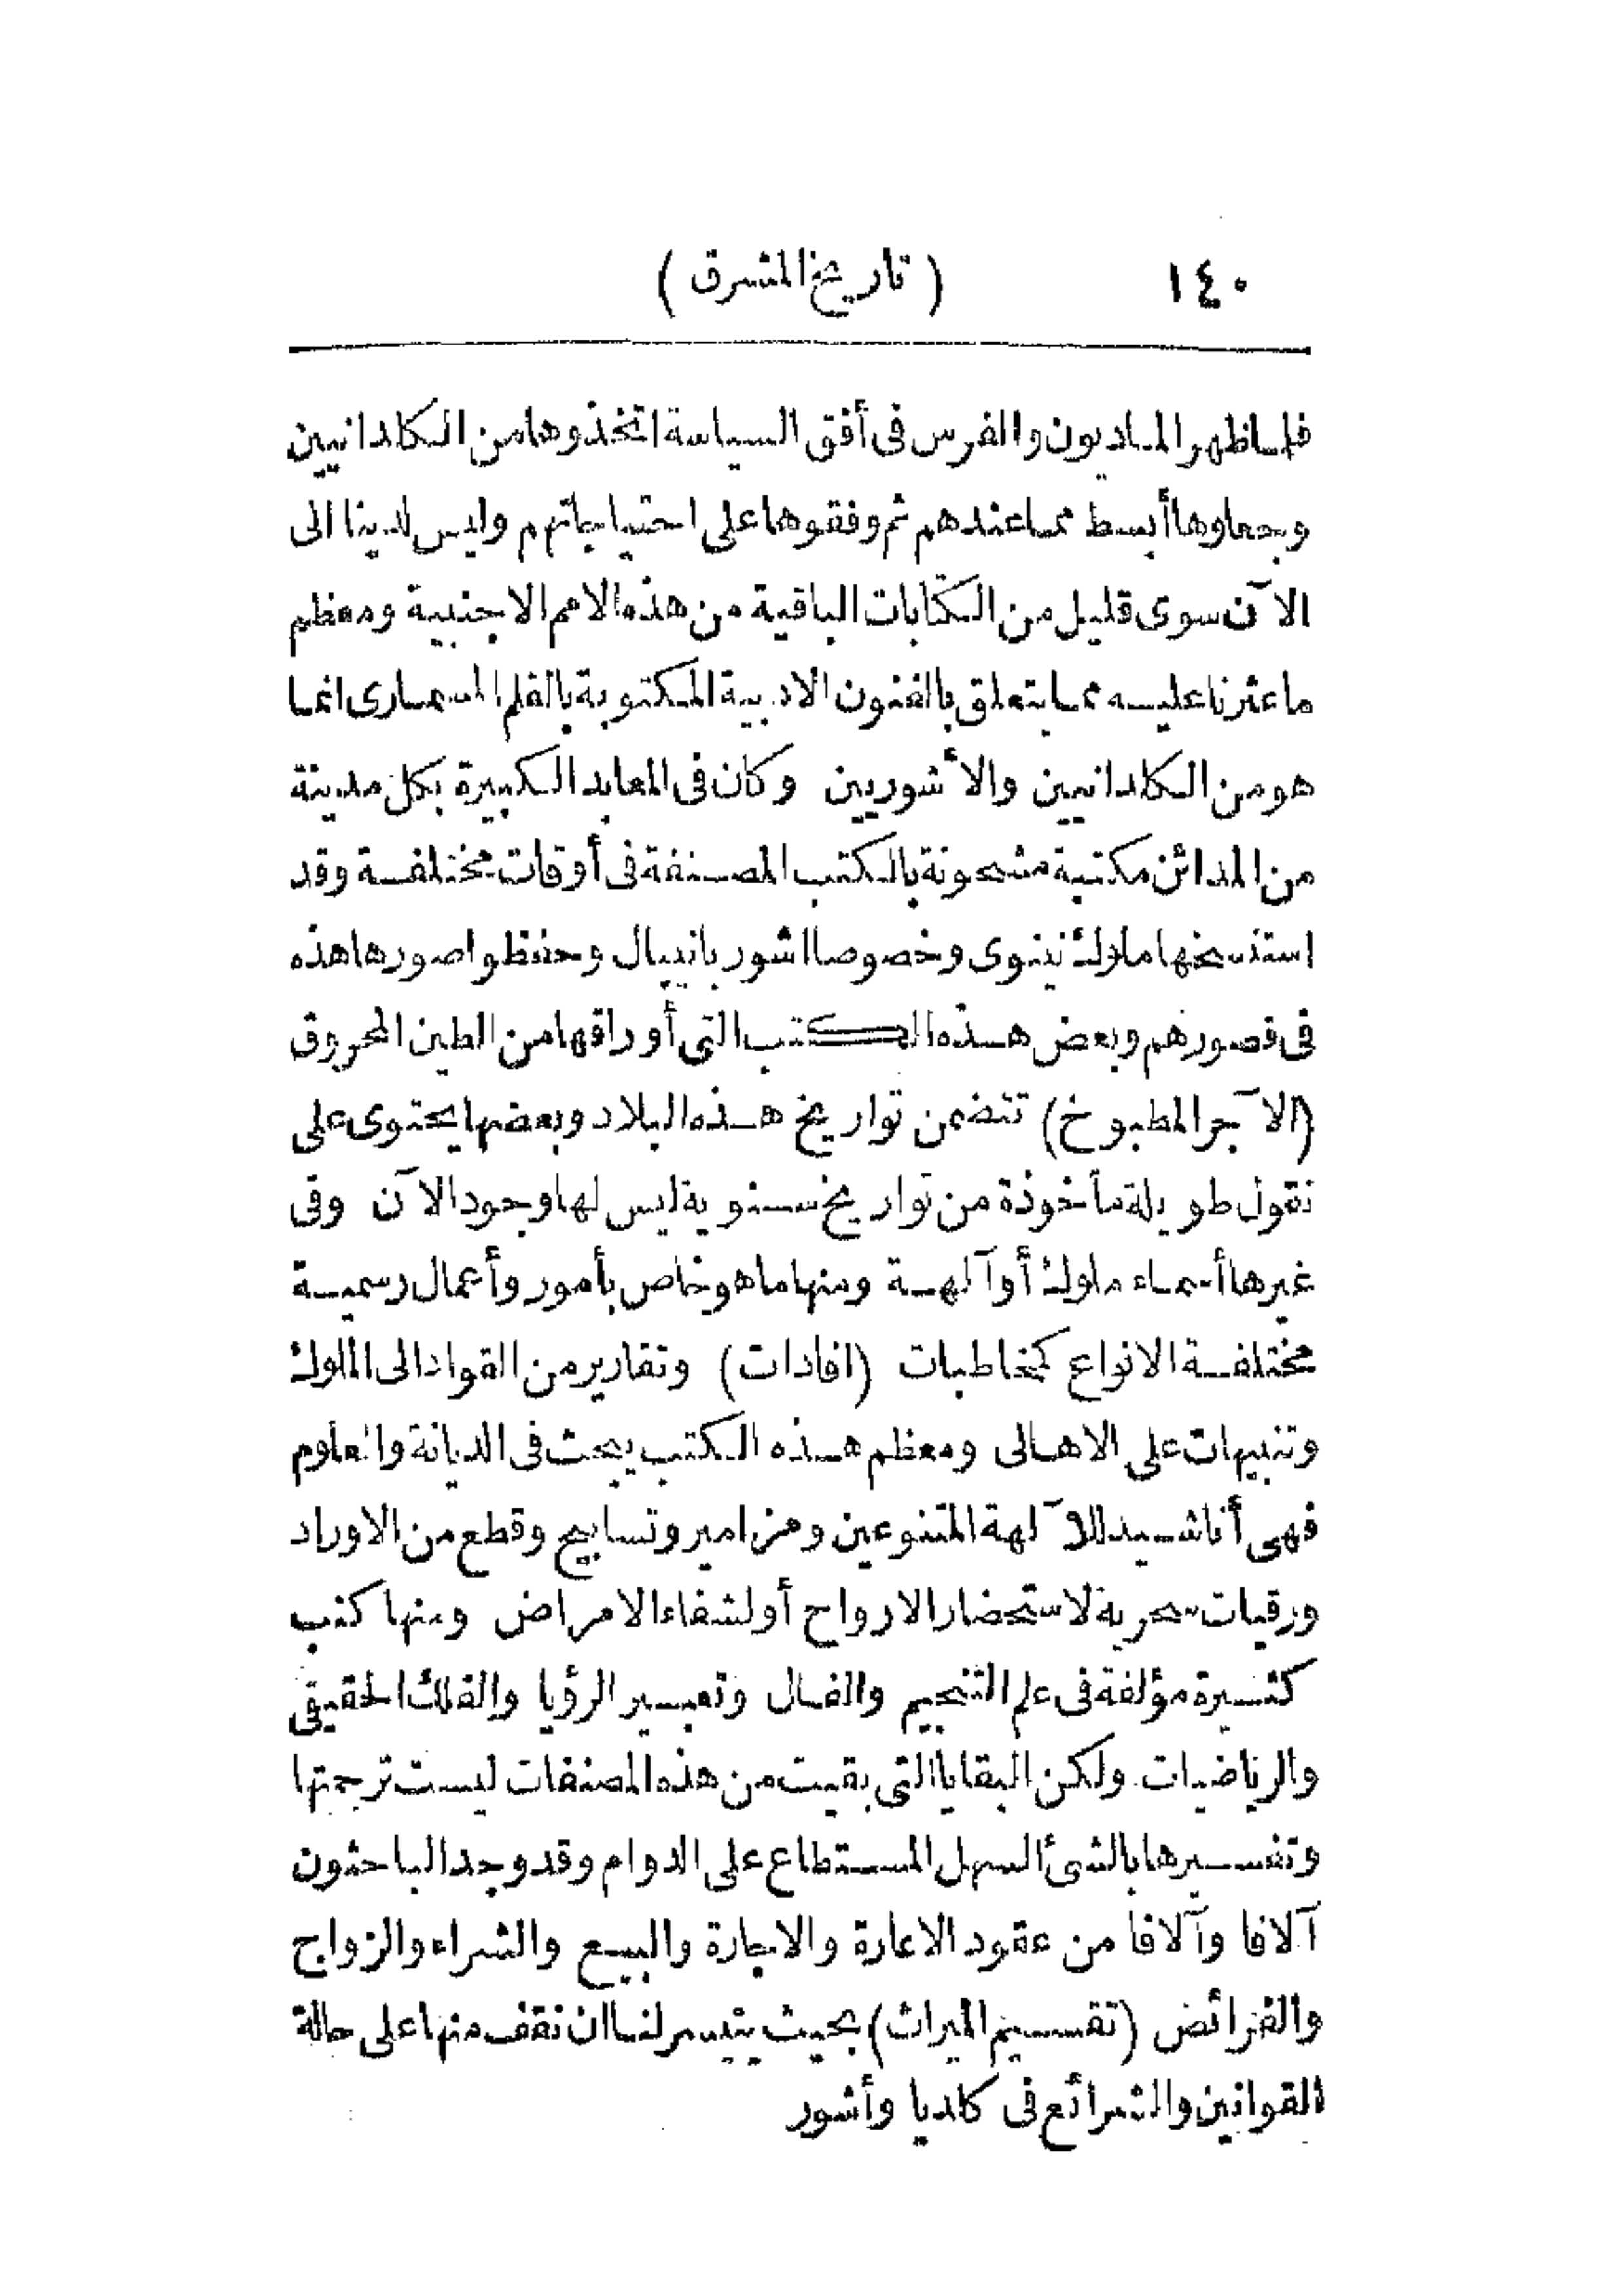 ١٤٠ (تاريخ المشرق)
فلما ظهر الماديون والفرس فى أفق السياسة اتخذوها من الكلدانيين
وجعلوها أبسط مما عندهم ثم وفقوها على احتياجاتهم وليس لدينا الى
الآن سوى قليل من الكتابات الباقية من هذه الامم الاجنبية ومعظم
ما عثرنا عليه مما يتعلق بالفنون الادبية المكتوبة بالقلم المسمارى انما
هو من الكلدانيين والأشوريين وكان فى المعابد الكبيرة بكل مدينة
من المدائن مكتبة مشحونة بالكتب المصنفة فى أوقات مختلفة وقد
استنسخها ملوك نينوى وخصوصا اشور بانيبال وحفظوا صورها هذه
فى قصورهم وبعض هذه الكتب التى أوراقها من الطين المحروق
(الآجر المطبوخ) تتضمن تواريخ هذه البلاد وبعضها يحتوى على
نقول طويلة مأخوذة من تواريخ سنوية ليس لها وجود الآن وفى
غيرها أسماء ملوك أو آلهة ومنها ما هو خاص بأمور وأعمال رسمية
مختلفة الانواع كمخاطبات (افادات) وتقارير من القواد الى الملوك
وتنبيهات على الاهالى ومعظم هذه الكتب يبحث فى الديانة والعلوم
فهى أناشيد للآلهة المتنوعين ومزامير وتسابيح وقطع من الاوراد
ورقيات سحرية لاستحضار الارواح أو لشفاء الامراض ومنها كتب
كثيرة مؤلفة فى علم التنجيم والفال وتعبير الرؤيا والفلك الحقيقى
والرياضيات ولكن البقايا التى بقيت من هذه المصنفات ليست ترجمتها
وتفسيرها بالشئ السهل المستطاع على الدوام وقد وجد الباحثون
آلافا وآلافا من عقود الاعارة والاجارة والبيع والشراء والزواج
والفرائض (تقسيم الميراث) بحيث يتيسر لنا ان نقف منها على حالة
القوانين والشرائع فى كلديا وأشور